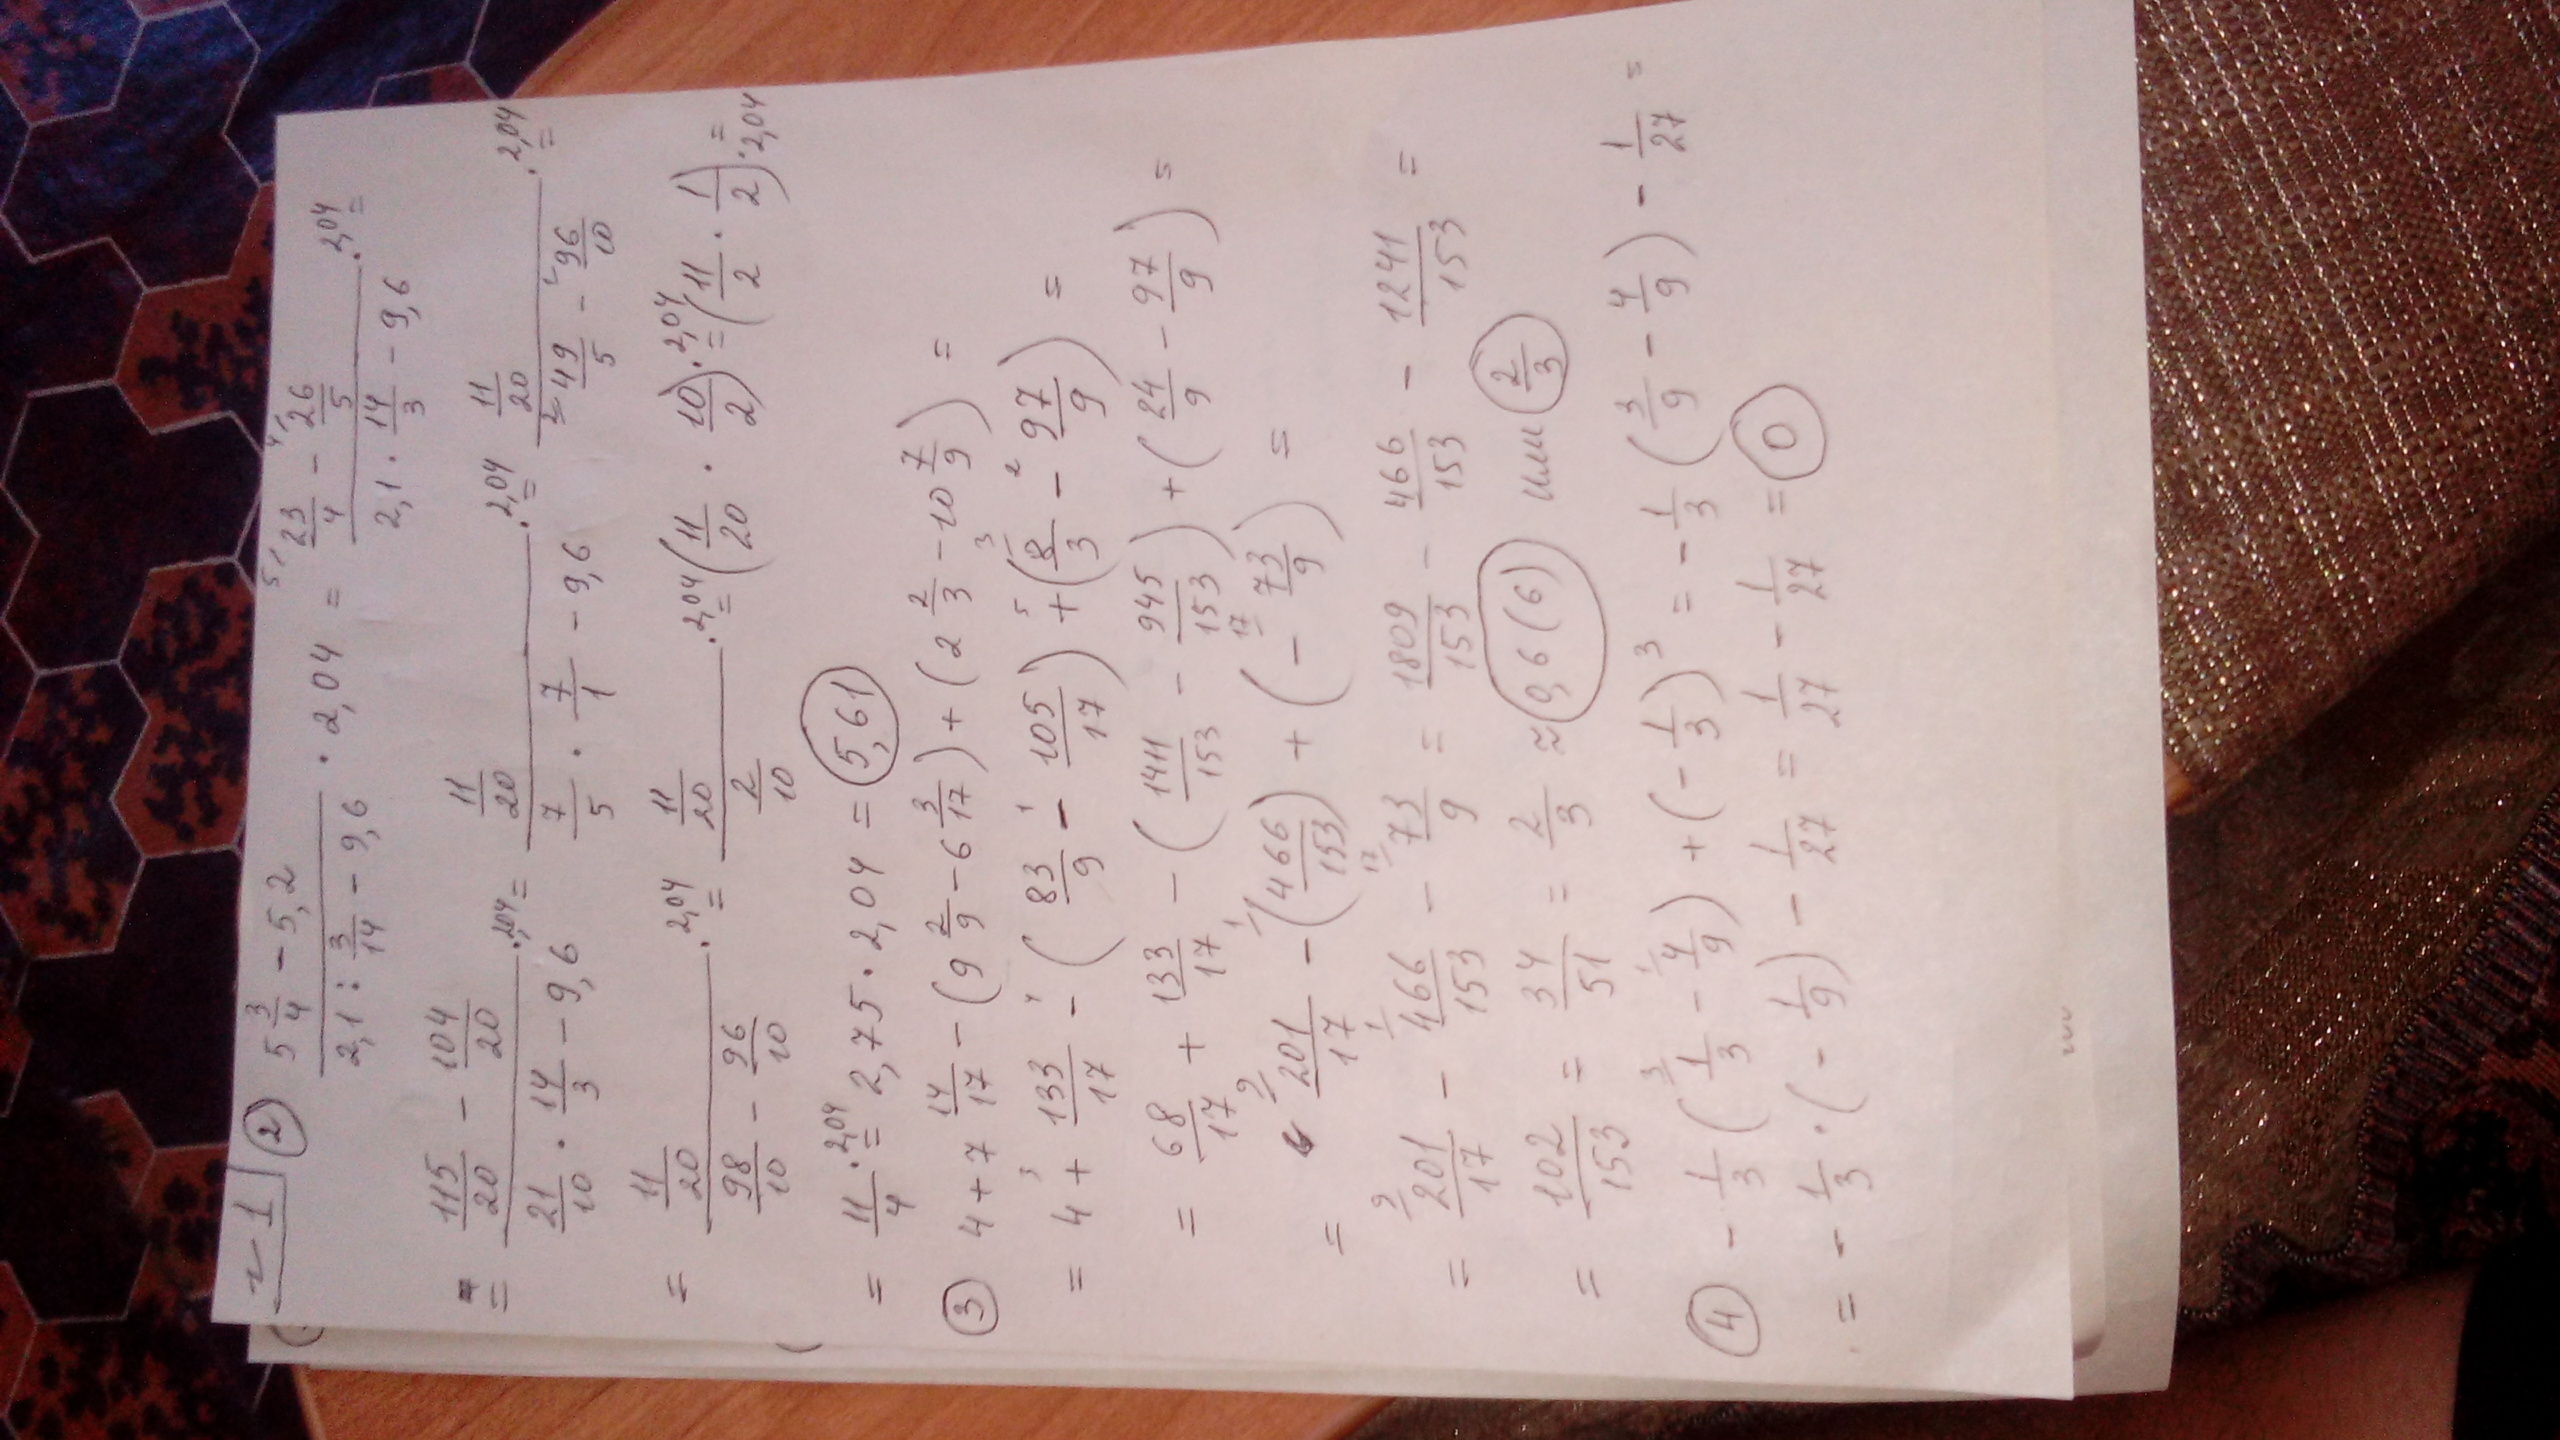 ~1 ② 5 3/4 - 5,2 / 2,1 : 3/14 - 9,6 · 2,04 = 23/4 - 26/5 / 2,1 · 14/3 - 9,6 · 2,04 =
= 115/20 - 104/20 / 21/10 · 14/3 - 9,6 · 2,04 = 11/20 / 7/5 · 7/1 - 9,6 · 2,04 = 11/20 / 49/5 - 96/10 · 2,04 =
= 11/20 / 98/10 - 96/10 · 2,04 = 11/20 / 2/10 · 2,04 = (11/20 · 10/2) · 2,04 = (11/2 · 1/2) · 2,04 =
= 11/4 · 2,04 = 2,75 · 2,04 = 5,61
③ 4 + 7 14/17 - (9 2/9 - 6 3/17) + (2 2/3 - 10 7/9) =
= 4 + 133/17 - (83/9 - 105/17) + (8/3 - 97/9) =
= 68/17 + 133/17 - (1411/153 - 945/153) + (24/9 - 97/9) =
= 201/17 - (466/153) + (- 73/9) =
= 201/17 - 466/153 - 73/9 = 1809/153 - 466/153 - 1241/153 =
= 102/153 = 34/51 = 2/3 ≈ 0,6(6) или 2/3
④ - 1/3 (1/3 - 4/9) + (- 1/3)³ = - 1/3 (3/9 - 4/9) - 1/27 =
= - 1/3 · (- 1/9) - 1/27 = 1/27 - 1/27 = 0